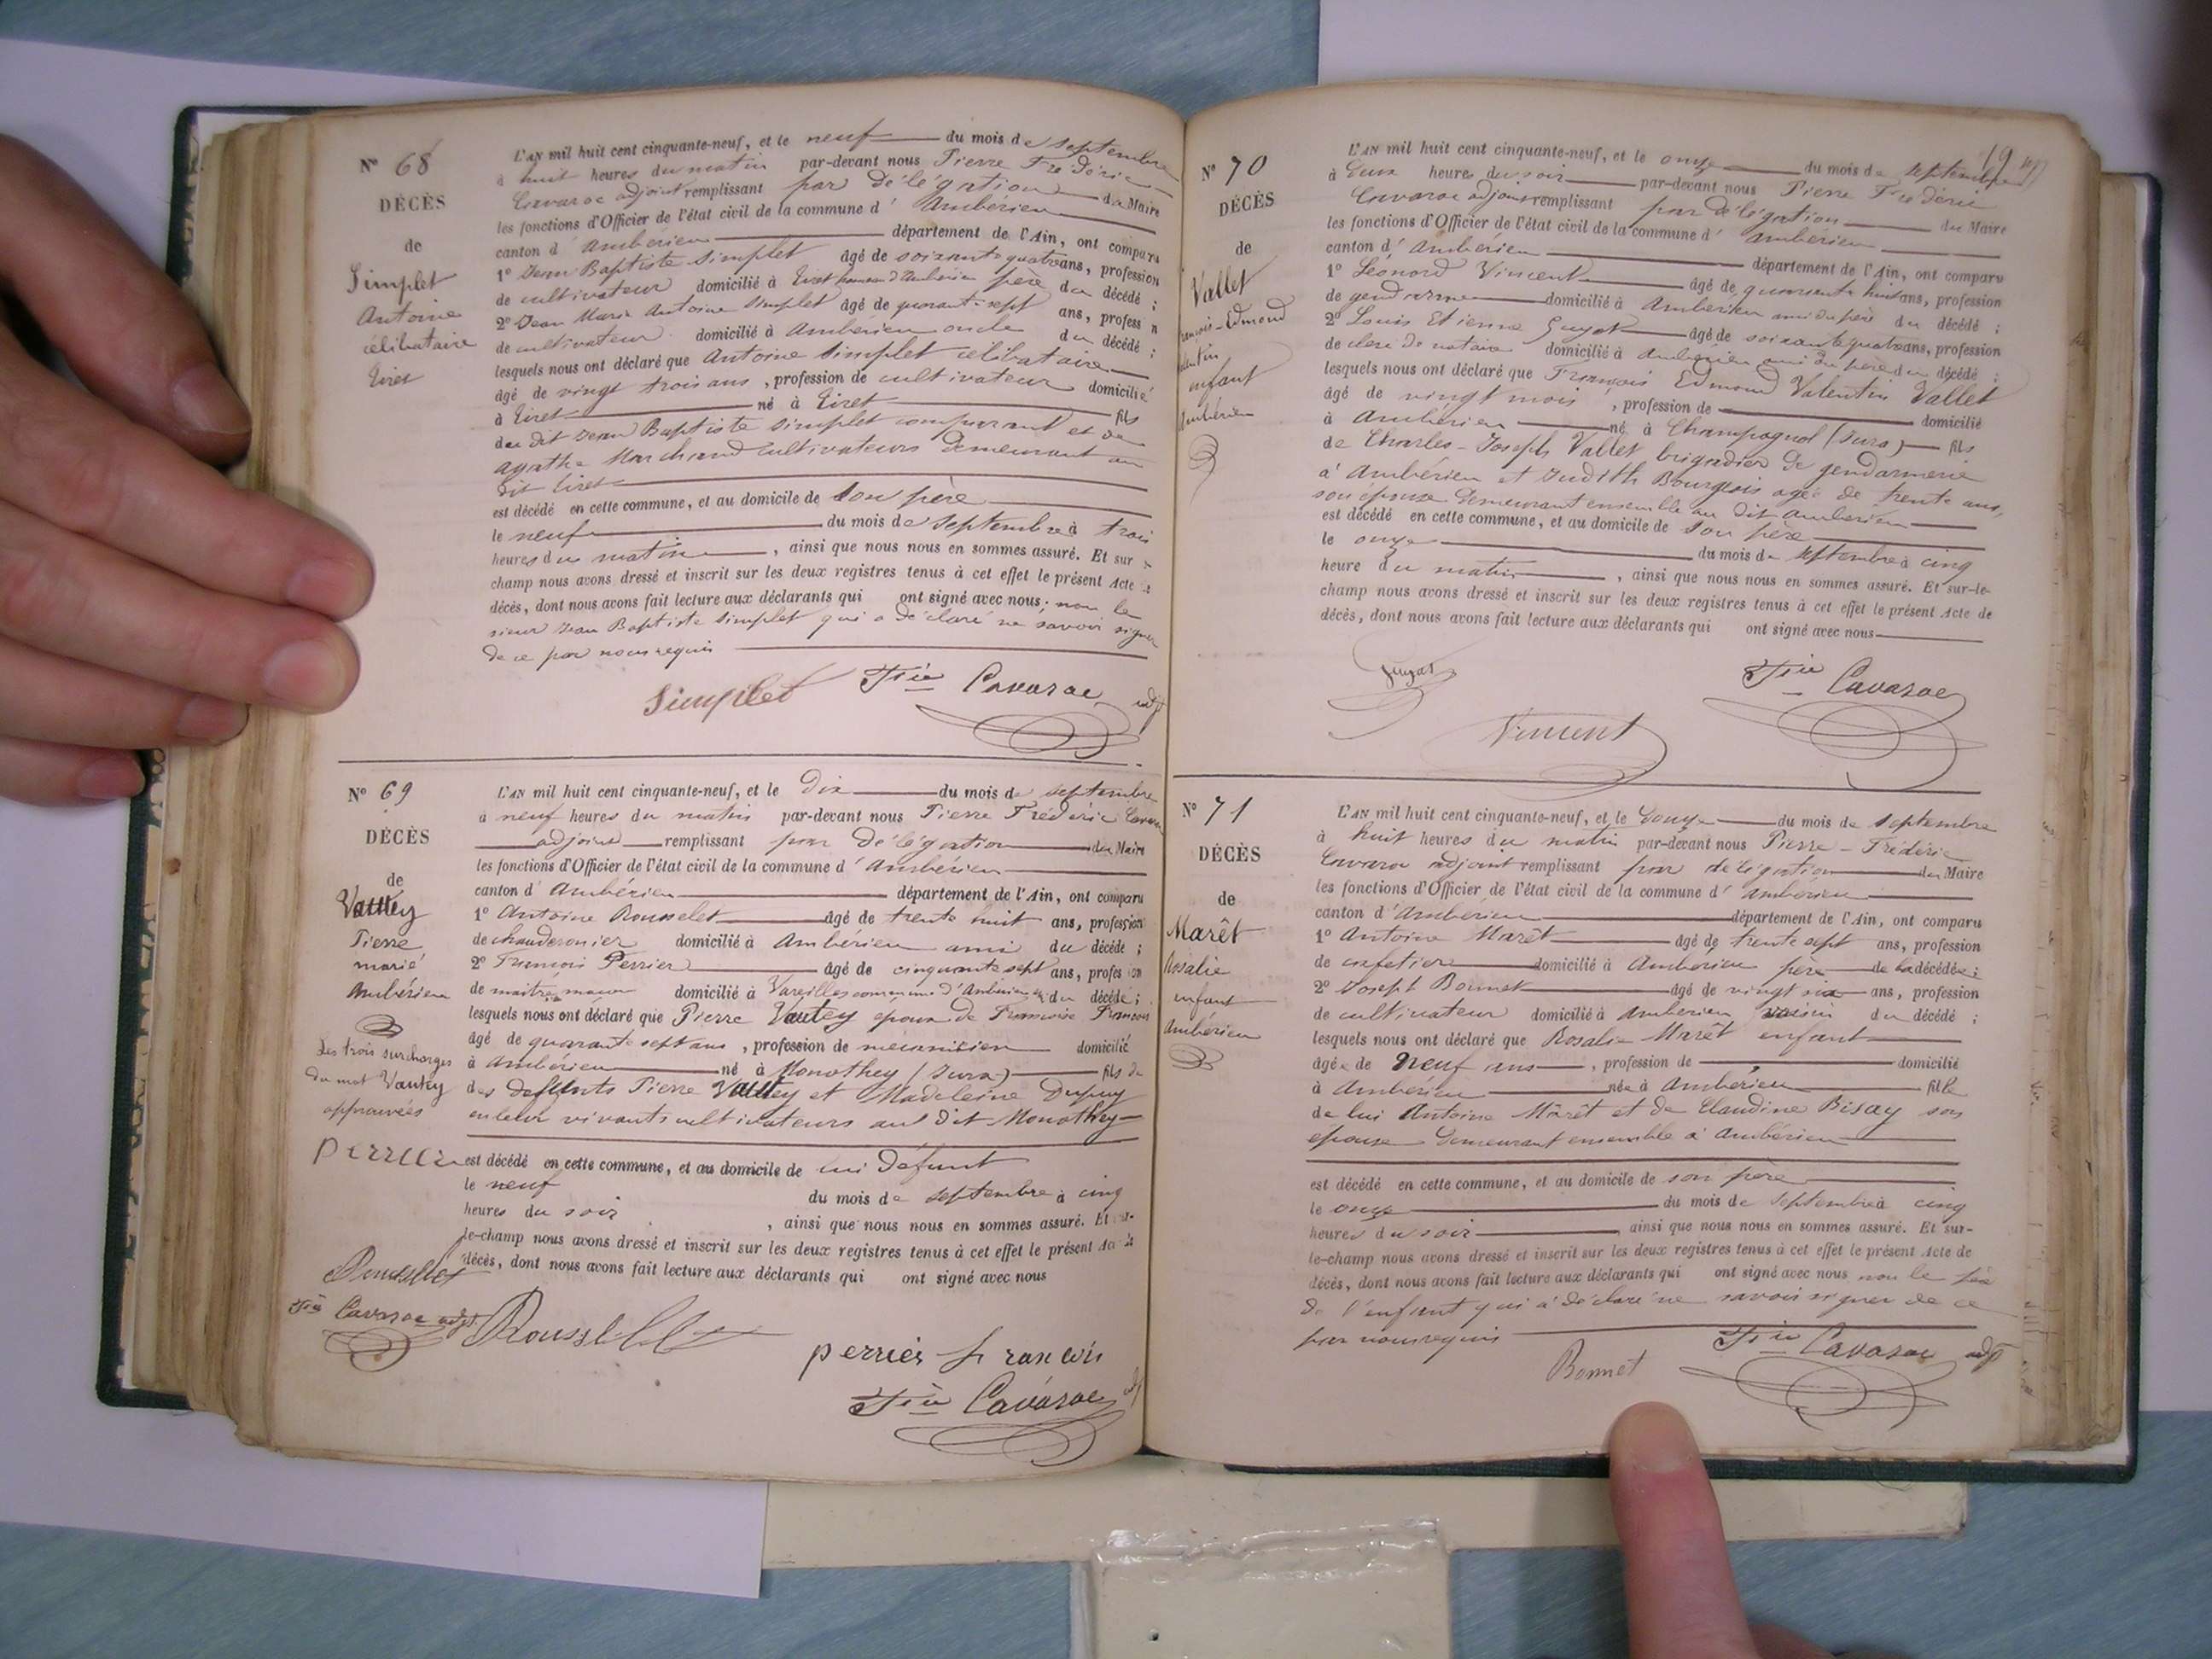 N° 68
DÉCÈS
de
Simplet
Antoine
célibataire
Tiret
L'AN mil huit cent cinquante-neuf, et le neuf du mois de septembre
à huit heures du matin par-devant nous Pierre Frédéric
Cavaroc adjoint remplissant par délégation du Maire
les fonctions d'Officier de l'état civil de la commune d' Ambérieu
canton d' Ambérieu département de l'Ain, ont comparu
1° Jean Baptiste Simplet âgé de soixante quatre ans, profession
de cultivateur domicilié à Tiret hameau d'Ambérieu père du décédé ;
2° Jean Marie Antoine Simplet âgé de quarante sept ans, profession
de cultivateur domicilié à Ambérieu oncle du décédé ;
lesquels nous ont déclaré que Antoine Simplet célibataire
âgé de vingt trois ans, profession de cultivateur domicilié
à Tiret né à Tiret fils
du dit Jean Baptiste Simplet comparant et de
Agathe Marchand cultivateurs demeurant au
dit Tiret
est décédé en cette commune, et au domicile de son père
le neuf du mois de septembre à trois
heures du matin, ainsi que nous nous en sommes assuré. Et sur le
champ nous avons dressé et inscrit sur les deux registres tenus à cet effet le présent Acte de
décès, dont nous avons fait lecture aux déclarants qui ont signé avec nous; non le
sieur Jean Baptiste Simplet qui a déclaré ne savoir signer
de ce par nous requis
Simplet Fric Cavaroc adjt
N° 69
DÉCÈS
de
Vautey
Pierre
marié
Ambérieu
Les trois surcharges
du mot Vautey
approuvées
perrier
Rousselet
Fric Cavaroc adjt
L'AN mil huit cent cinquante-neuf, et le dix du mois de septembre
à neuf heures du matin par-devant nous Pierre Frédéric Cavaroc
adjoint remplissant par délégation du Maire
les fonctions d'Officier de l'état civil de la commune d' Ambérieu
canton d' Ambérieu département de l'Ain, ont comparu
1° Antoine Rousselet âgé de trente huit ans, profession
de chauderonier domicilié à Ambérieu ami du décédé ;
2° François Perrier âgé de cinquante sept ans, profession
de maitre maçon domicilié à Vareilles commune d'Ambérieu du décédé ;
lesquels nous ont déclaré que Pierre Vautey époux de Françoise
âgé de quarante sept ans, profession de mécanicien domicilié
à Ambérieu né à Monothey (Jura) fils de
des defunts Pierre Vautey et Madeleine Dupuy
en leur vivant cultivateurs au dit Monothey
est décédé en cette commune, et au domicile de lui défunt
le neuf du mois de septembre à cinq
heures du soir, ainsi que nous nous en sommes assuré. Et sur-
le-champ nous avons dressé et inscrit sur les deux registres tenus à cet effet le présent Acte de
décès, dont nous avons fait lecture aux déclarants qui ont signé avec nous
Rousselet
perrier francois
Fric Cavaroc adjt
19
N° 70
DÉCÈS
de
Vallet
François-Edmond
Valentin
enfant
Ambérieu
L'AN mil huit cent cinquante-neuf, et le onze du mois de septembre
à deux heures du soir par-devant nous Pierre Frédéric
Cavaroc adjoint remplissant par délégation du Maire
les fonctions d'Officier de l'état civil de la commune d' Ambérieu
canton d' Ambérieu département de l'Ain, ont comparu
1° Léonard Vincent âgé de quarante huit ans, profession
de gendarme domicilié à Ambérieu ami du père du décédé ;
2° Louis Etienne Guyot âgé de soixante quatre ans, profession
de clerc de notaire domicilié à Ambérieu ami du père du décédé ;
lesquels nous ont déclaré que François Edmond Valentin Vallet
âgé de vingt mois, profession de domicilié
à Ambérieu né à Champagnol (Jura) fils
de Charles-Joseph Vallet brigadier de gendarmerie
à Ambérieu et Judith Bourgeois agée de trente ans,
son épouse demeurant ensemble au dit Ambérieu
est décédé en cette commune, et au domicile de son père
le onze du mois de septembre à cinq
heure du matin, ainsi que nous nous en sommes assuré. Et sur-le-
champ nous avons dressé et inscrit sur les deux registres tenus à cet effet le présent Acte de
décès, dont nous avons fait lecture aux déclarants qui ont signé avec nous
Guyot Fric Cavaroc
Vincent
N° 71
DÉCÈS
de
Marêt
Rosalie
enfant
Ambérieu
L'AN mil huit cent cinquante-neuf, et le douze du mois de septembre
à huit heures du matin par-devant nous Pierre-Frédéric
Cavaroc adjoint remplissant par délégation du Maire
les fonctions d'Officier de l'état civil de la commune d' Ambérieu
canton d' Ambérieu département de l'Ain, ont comparu
1° Antoine Marêt âgé de trente sept ans, profession
de cafetier domicilié à Ambérieu père de la décédée ;
2° Joseph Bonnet âgé de vingt six ans, profession
de cultivateur domicilié à Ambérieu voisin du décédé ;
lesquels nous ont déclaré que Rosalie Marêt enfant
âgée de neuf ans, profession de domicilié
à Ambérieu née à Ambérieu fille
de lui Antoine Marêt et de Claudine Bisay son
épouse demeurant ensemble à Ambérieu
est décédé en cette commune, et au domicile de son père
le onze du mois de septembre à cinq
heures du soir ainsi que nous nous en sommes assuré. Et sur-
le-champ nous avons dressé et inscrit sur les deux registres tenus à cet effet le présent Acte de
décès, dont nous avons fait lecture aux déclarants qui ont signé avec nous non le père
de l'enfant qui a déclaré ne savoir signer de ce
par nous requis
Bonnet Fric Cavaroc adjt